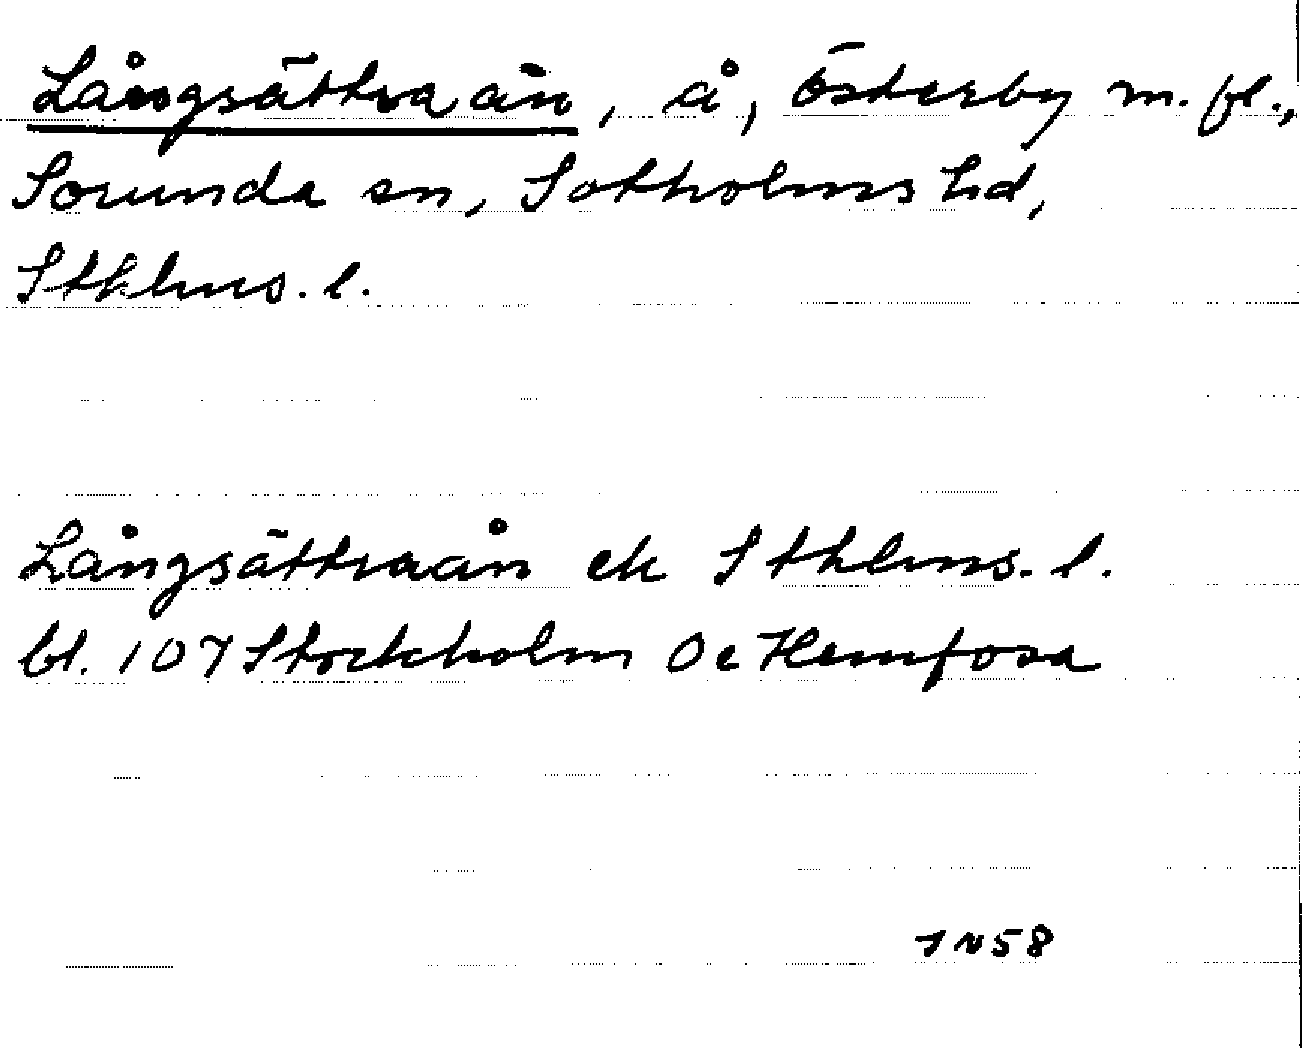 Långsättraån, å, Österby m. fl.,
Sorunda sn, Sotholms hd,
Sthlms. l.
Långsättraån ek Sthlms. l.
bl. 107 Stockholm Oc Hemfosa
58